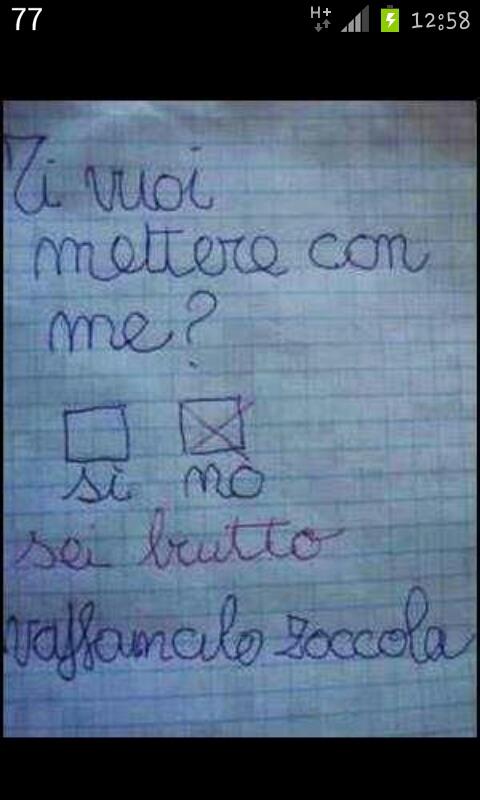 77
H+
12:58
Ti vuoi
mettere con
me?
si nò
sei brutto
vaffanculo zoccola